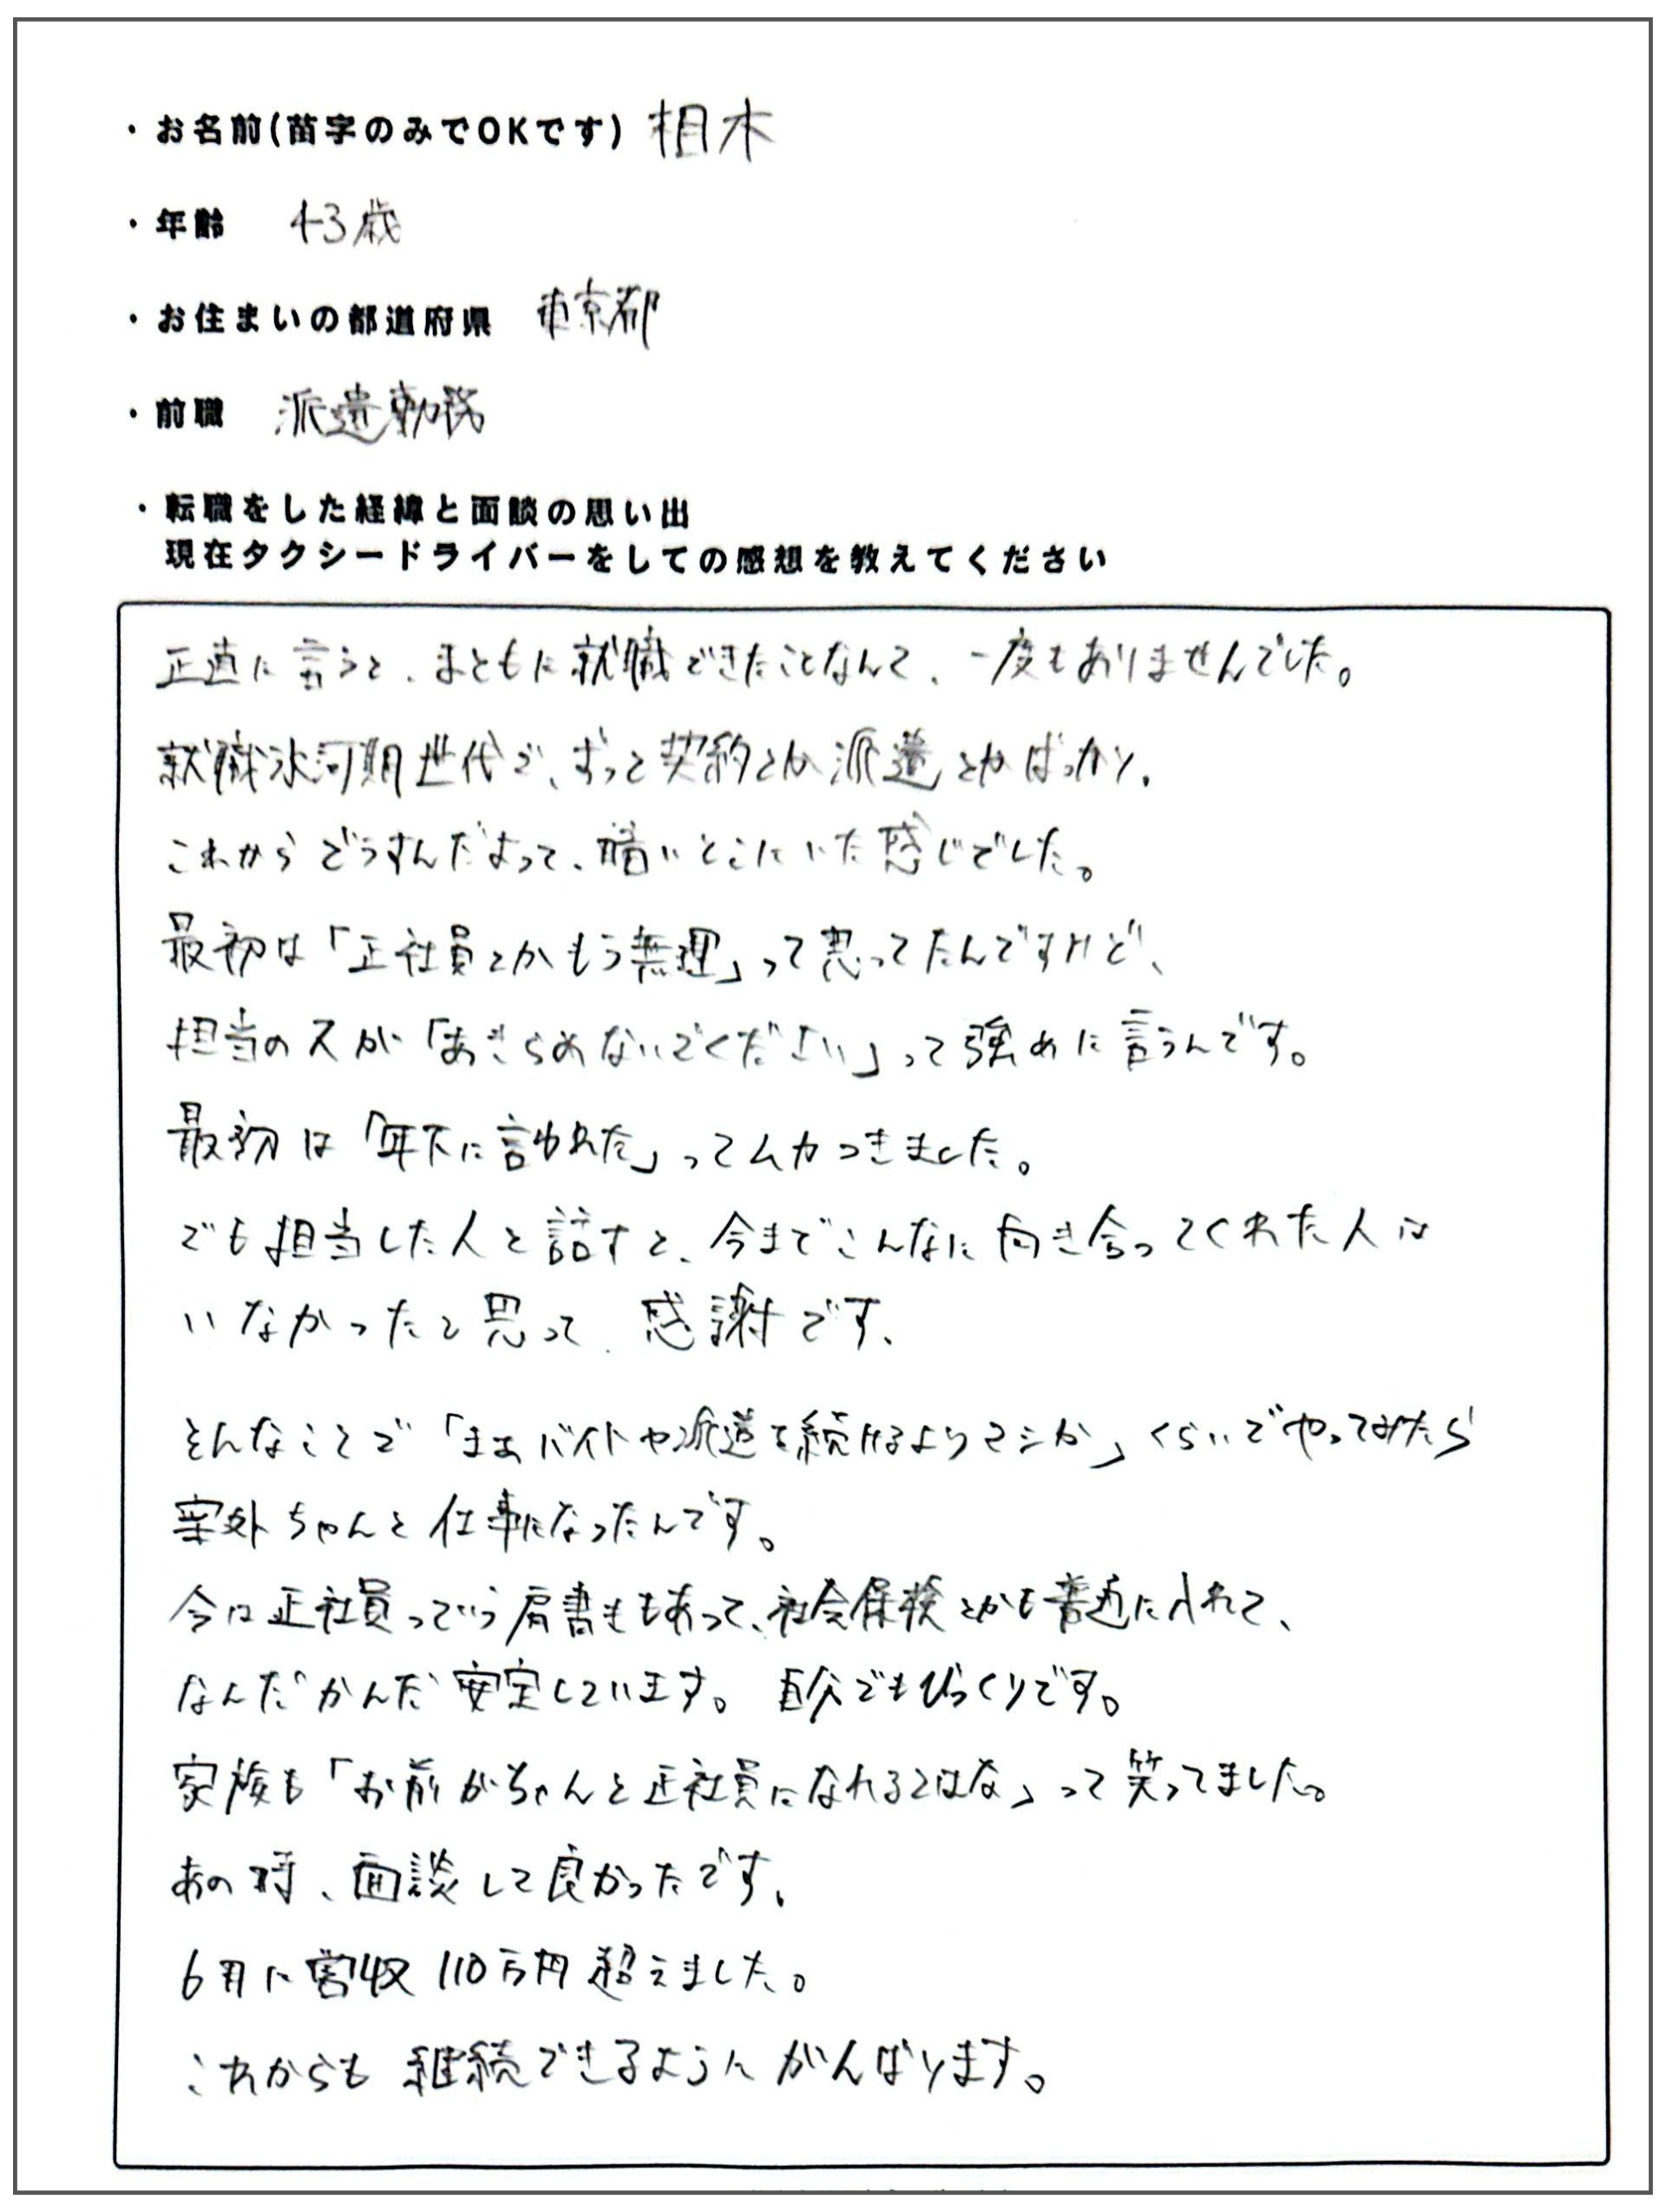 ・お名前(苗字のみでOKです) 相木
・年齢 43歳
・お住まいの都道府県 東京都
・前職 派遣勤務
・転職をした経緯と面談の思い出
現在タクシードライバーをしての感想を教えてください
正直に言うと、まともに就職できたことなんて、一度もありませんでした。
就職氷河期世代で、ずっと契約とか派遣とかばっかり。
これからどうすんだよって、暗いとこにいた感じでした。
最初は「正社員とかもう無理」って思ってたんですけど、
担当の人が「あきらめないでください」って強めに言うんです。
最初は「年下に言われた」ってムカつきました。
でも担当した人と話すと、今までこんなに向き合ってくれた人は
いなかったと思って、感謝です、
そんなことで「まぁバイトや派遣を続けるよりマシか」くらいでやってみたら
案外ちゃんと仕事になったんです。
今は正社員っていう肩書きもあって、社会保険とかも普通に入れて、
なんだかんだ安定しています。自分でもびっくりです。
家族も「お前がちゃんと正社員になれるとはな」って笑ってました。
あの時、面談して良かったです、
6月に営収110万円超えました。
これからも継続できるようにがんばります。